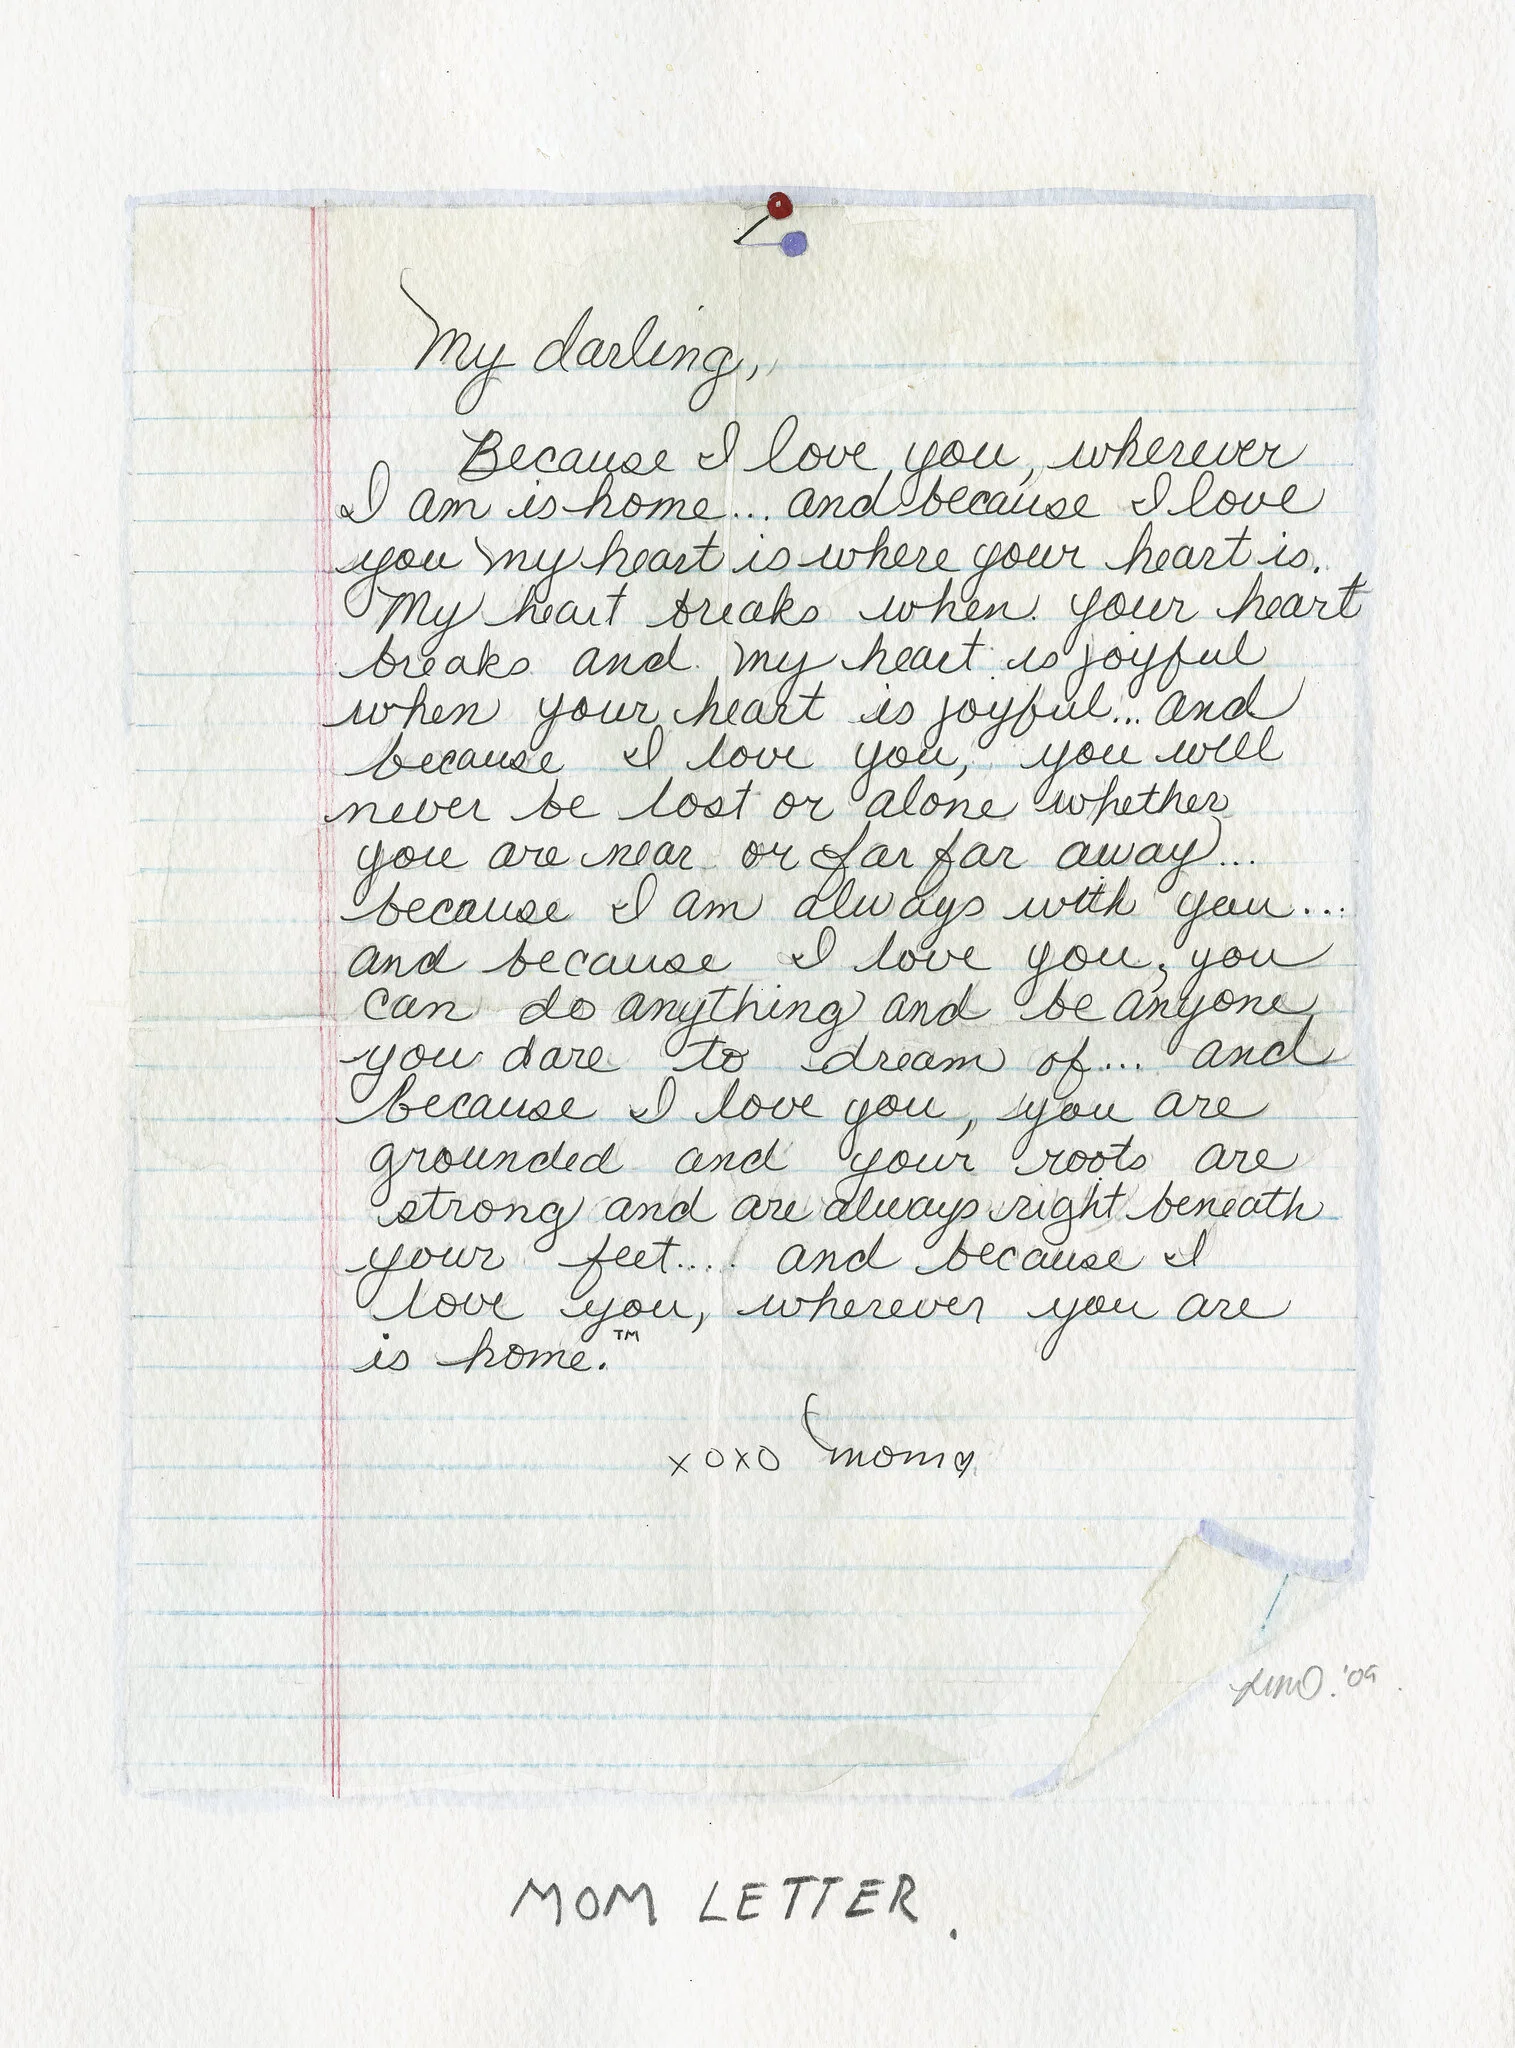 My darling,
Because I love you, wherever
I am is home... and because I love
you my heart is where your heart is.
My heart breaks when your heart
breaks and my heart is joyful
when your heart is joyful... and
because I love you, you will
never be lost or alone whether
you are near or far far away...
because I am always with you...
and because I love you, you
can do anything and be anyone
you dare to dream of... and
because I love you, you are
grounded and your roots are
strong and are always right beneath
your feet.... and because I
love you, wherever you are
is home.™
xoxo mom♡
'09
MOM LETTER.